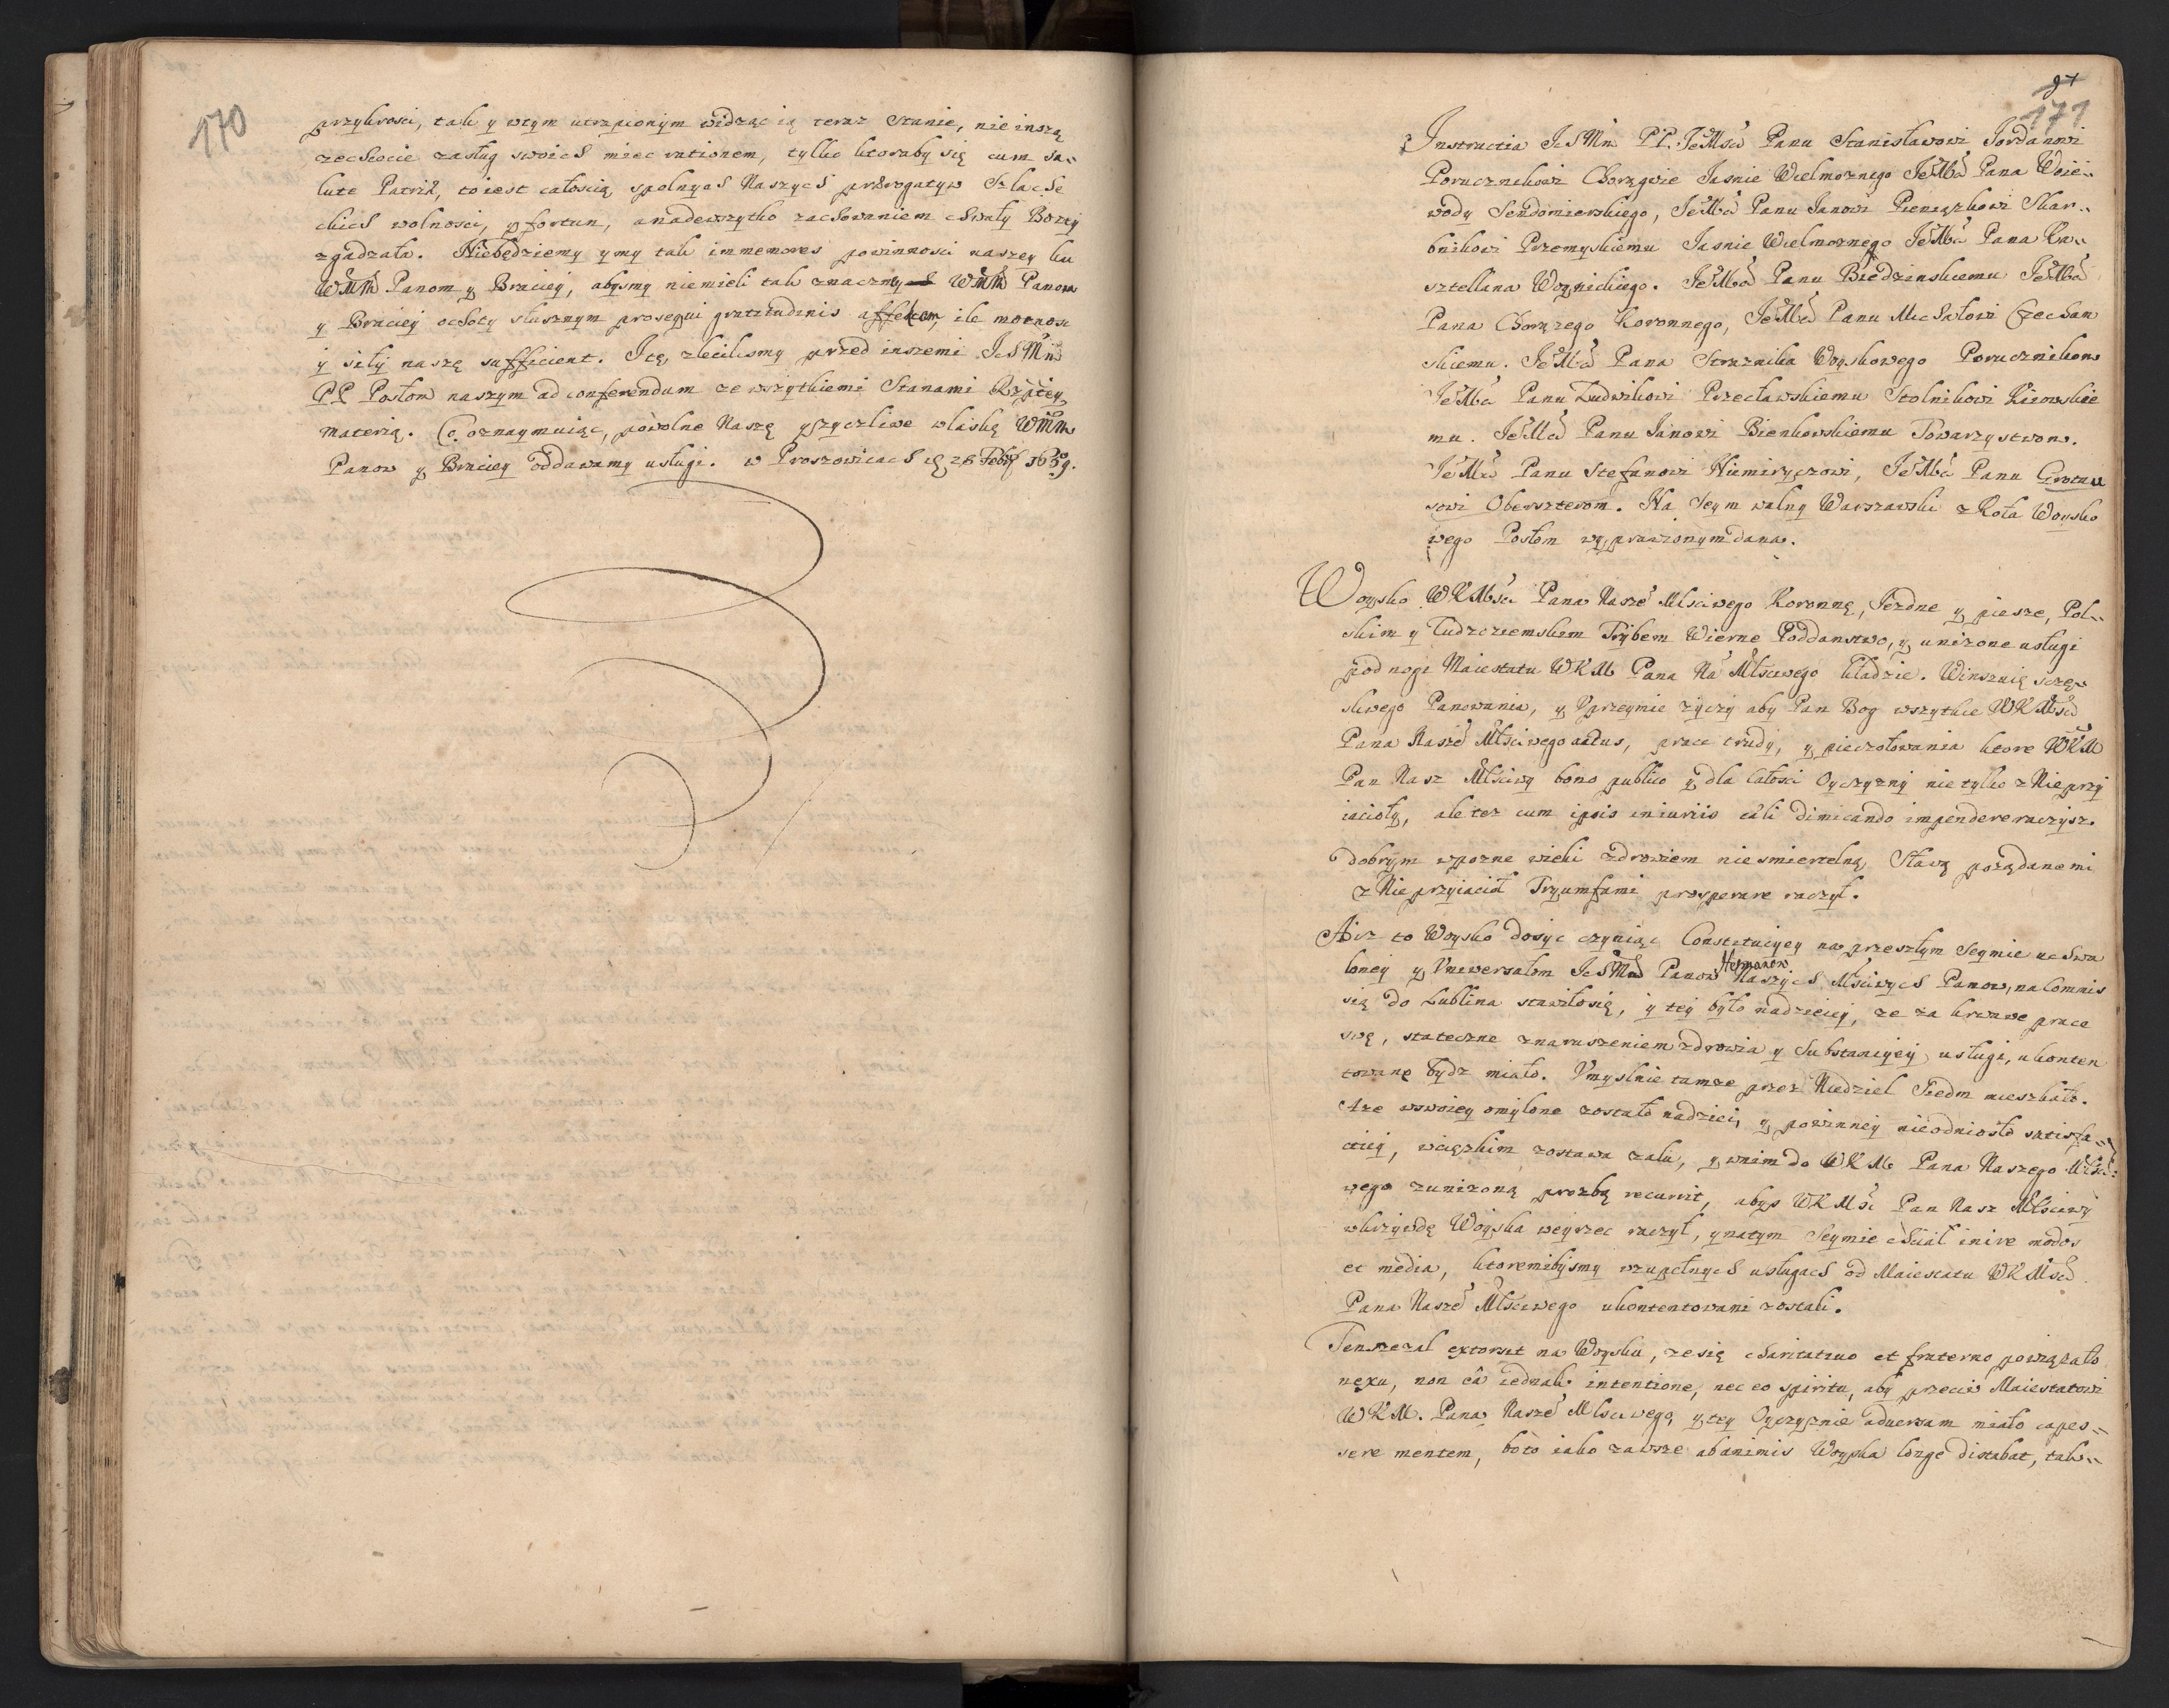 170
przykrosci, tak y wtym utrapionym widząc ią teraz Stanie, nie inszą
zechcecie zasług swoich miec rationem, tylko ktoraby się cum sa„
lute Patriæ, to iest całoscią spolnych Naszych prærogatyw Szlache
ckich wolnosci, y fortun, a nadewszytko zachowaniem chwały Bozey
zgadzała. Niebędziemy y my tak immemores powinnosci naszey ku
WMM Panom y Braciey, abysmy niemieli tak znaczny WMM Panow
y Braciey ochoty słusznym prosequi gratitudinis affectem, ile moznosc
y siły naszę sufficient. Itę, zlecilismy przed inszemi IchMm
PP Posłom naszym ad conferendum ze wszytkiemi Stanami Rzptey
materią. Co oznaymuiąc, powolne Naszę y zyczliwe w łaskę WMM
Panow y Braciey oddawamy usługi. w Proszowicach d 28 Febr 1659.
97
171
Instructia IchMm PP. JeMsci Panu Stanisławowi Jordanowi
Porucznikowi Chorągwie Jasnie Wielmoznego JeMści Pana Woie„
wody Sendomierskiego, JeMści Panu Janowi Pieniązkowi Skar„
bnikowi Przemyskiemu Jasnie Wielmoznego JeMści Pana Ka„
sztellana Woynickiego. JeMści Panu Biedzinskiemu JeMści
Pana Chorązego Koronnego, JeMści Panu Michałowi Czechan
skiemu. JeMści Pana Straznika Woyskowego Porucznikom
JeMści Panu Ludwikowi Przecławskiemu Stolnikowi Kiiowskie
mu. JeMści Panu Janowi Bienkowskiemu Towarzystwom.
JeMści Panu Stefanowi Niemiryczowi, JeMści Panu Grotau
sowi Oberszterom. Na Seym walny Warszawski z Koła Woysko
wego Posłom wyprawionym dana.
Woysko WKMści Pana Nasze Mściwego Koronnę, Jezdne y piesze, Pol„
skim y Cudzoziemskim Trybem Wierne Poddanstwo, y unizone usługi
pod nogi Maiestatu WKM Pana Na Młściwego kładzie. Winszuię sczę„
sliwego Panowania, y Vprzeymie zyczy aby Pan Bog wszytkie WKMsci
Pana Nasze Młściwego actus, prace trudy, y pieczołowania ktore WKM
Pan Nasz Młściwy bono publico y dla całosci Oyczyzny nie tylko z Nieprzy
iacioły, ale tez cum ipsis iniuriis cæli dimicando impendere raczysz.
Dobrym wpozne wieki zdrowiem niesmiertelną Sławą poządanemi
z Nieprzyiacioł Tryumfami prosperare raczył.
Aisz to Woysko dosyc czyniąc Constituiyey na przeszłym Seymie uchwa
loney y Vniwersałom IchMm Panow Hetmanow Naszych Mściwych Panow, na Comnis
sią do Lublina stawiłosię, y tey było nadzieiey, ze za krwawe prace
swę, stateczne znaruszeniem zdrowia y Substanciyey usługi, ukonten
towanę bydz miało. Vmyslnie tamze przez Niedziel Siedm mieszkało.
Aze wswoiey omylone zostało nadziei, y powinney nieodniosło satisfa„
ctiey, wcięzkim zostawa zalu, y wnim do WKM Pana Naszego Młści„
wego zunizoną prozbą recurrit, abys WKMśc Pan Nasz Młściwy
wkrzywdę Woyska weyrzec raczył, y natym Seymie chciał inire modos
et media, ktoremibysmy wzupełnych usługach od Maiestatu WKMsci
Pana Nasze Młściwego ukontentowani zostali.
Tenze zal extorsit na Woysku, ze się charitatiuo et fraterno powiązało
nexu, non eâ iednak intentione, nec eo spiritu, aby przeciw Maiestatowi
WKM. Pana Nasze Mlsciwego, y tey Oyczyznie aduersam miało capes„
sere mentem, bo to iako zawsze ab animis Woyska longe distabat, tak„